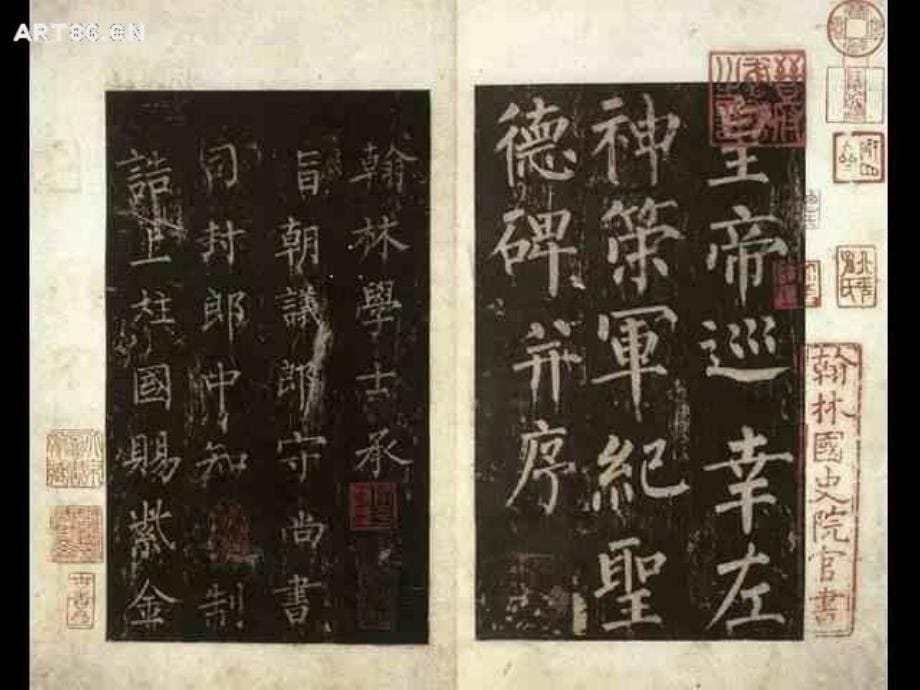 ART86.CN
皇帝巡幸左
神策軍紀聖
德碑并序
翰林國史院官書
翰林學士承
旨朝議郎守尚書
司封郎中知制
誥上柱國賜紫金